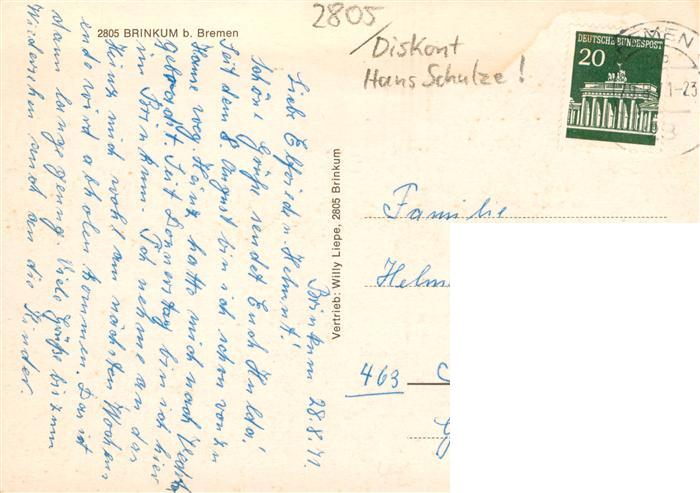 2805 BRINKUM b. Bremen
2805
Diskont
Hans Schulze!
DEUTSCHE BUNDESPOST
20
MEN
1-23
Brinkum 28.8.71
Liebe Elfriede u. Helmut!
Schöne Grüße sendet Euch Hulda!
Seit dem 8. August bin ich schon von zu
Hause weg. Heinz hatte mich nach
gebracht. Seit Donnerstag bin ich hier
in Brinkum. Ich nehme an das
Heinz mich wohl am nächsten Wochen
ende wird abholen kommen. Das ist
dann lange genug. Viele Grüße bis zum
Wiedersehen auch an die Kinder.
Vertrieb: Willy Liepe, 2805 Brinkum
Familie
Helm
463